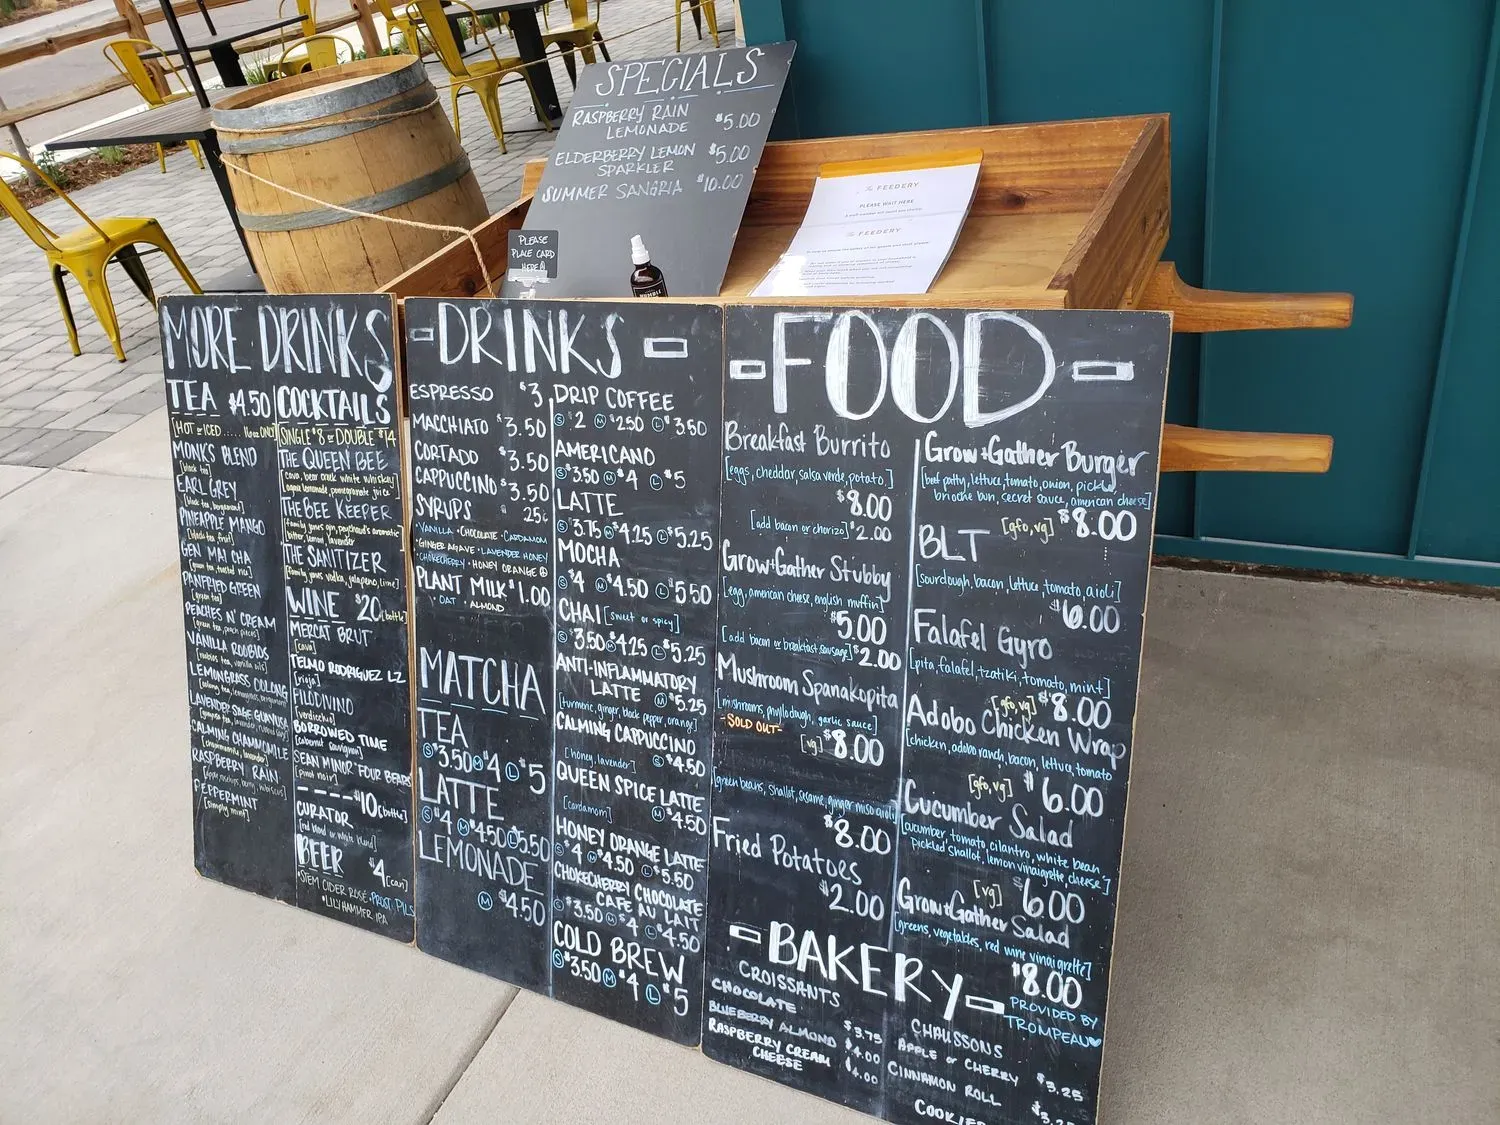 SPECIALS
RASPBERRY RAIN
LEMONADE $5.00
ELDERBERRY LEMON
SPARKLER $5.00
SUMMER SANGRIA $10.00
PLEASE
PLACE CARD
HERE
FEEDERY
PLEASE WAIT HERE
FEEDERY
MORE DRINKS
TEA $4.50
[HOT or ICED..... 16oz ONLY]
MONKS BLEND
[black tea]
EARL GREY
[black tea, bergamot]
PINEAPPLE MANGO
[black tea, fruit]
GEN MAI CHA
[green tea, toasted rice]
PANFIRED GREEN
[green tea]
PEACHES N' CREAM
[green tea, peach pieces]
VANILLA ROOBIOS
[rooibos tea, vanilla oils]
LEMONGRASS OOLONG
LAVENDER SAGE GUAYUSA
CALMING CHAMMOMILE
[chammomile, lavender]
RASPBERRY RAIN
PEPPERMINT
[simply mint]
COCKTAILS
SINGLE $8 or DOUBLE $14
THE QUEEN BEE
[cava, bear creek white whiskey,
agave lemonade, pomegranate juice]
THE BEE KEEPER
[family jones gin, peychaud's aromatic
bitter, lemon, lavender]
THE SANITIZER
[family jones vodka, jalapeno, lime]
WINE $20 [bottle]
MERCAT BRUT
[cava]
TELMO RODRIGUEZ LZ
[rioja]
FILODIVINO
[verdicchio]
BORROWED TIME
[cabernet sauvignon]
SEAN MINOR "FOUR BEARS
[pinot noir]
---- $10 [bottle]
CURATOR
[red blend or white blend]
BEER $4 [can]
• STEM CIDER ROSÉ • PROST: PILS
• LILYHAMMER IPA
- DRINKS -
ESPRESSO $3
MACCHIATO $3.50
CORTADO $3.50
CAPPUCCINO $3.50
SYRUPS 25¢
• VANILLA • CHOCOLATE • CARDAMOM
• GINGER AGAVE • LAVENDER HONEY
• CHOKECHERRY • HONEY ORANGE
PLANT MILK $1.00
• OAT • ALMOND
MATCHA
TEA
(S) $3.50 (M) $4 (L) $5
LATTE
(S) $4 (M) $4.50 (L) $5.50
LEMONADE
(M) $4.50
DRIP COFFEE
(S) $2 (M) $2.50 (L) $3.50
AMERICANO
(S) $3.50 (M) $4 (L) $5
LATTE
(S) $3.75 (M) $4.25 (L) $5.25
MOCHA
(S) $4 (M) $4.50 (L) $5.50
CHAI [sweet or spicy]
(S) $3.50 (M) $4.25 (L) $5.25
ANTI-INFLAMMATORY
LATTE (M) $5.25
[turmeric, ginger, black pepper, orange]
CALMING CAPPUCCINO
[honey, lavender] (S) $4.50
QUEEN SPICE LATTE
[cardamom] (M) $4.50
HONEY ORANGE LATTE
(S) $4 (M) $4.50 (L) $5.50
CHOKECHERRY CHOCOLATE
CAFE AU LAIT
(S) $3.50 (M) $4 (L) $4.50
COLD BREW
(S) $3.50 (M) $4 (L) $5
- FOOD -
Breakfast Burrito
[eggs, cheddar, salsa verde, potato,]
$8.00
[add bacon or chorizo] $2.00
Grow+Gather Stubby
[egg, american cheese, english muffin]
$5.00
[add bacon or breakfast sausage] $2.00
Mushroom Spanakopita
[mushrooms, phyllo dough, garlic sauce]
-SOLD OUT-
[vg] $8.00
[green beans, shallot, sesame, ginger miso aioli]
$8.00
Fried Potatoes
$2.00
Grow+Gather Burger
[beef patty, lettuce, tomato, onion, pickle,
brioche bun, secret sauce, american cheese]
[gfo, vg] $8.00
BLT
[sourdough, bacon, lettuce, tomato, aioli]
$6.00
Falafel Gyro
[pita, falafel, tzatiki, tomato, mint]
[gfo, vg] $8.00
Adobo Chicken Wrap
[chicken, adobo ranch, bacon, lettuce, tomato
[gfo, vg] $6.00
Cucumber Salad
[cucumber, tomato, cilantro, white bean,
pickled shallot, lemon vinaigrette, cheese]
[vg] $6.00
Grow+Gather Salad
[greens, vegetables, red wine vinaigrette]
$8.00
- BAKERY -
PROVIDED BY
TROMPEAU
CROISSANTS
CHOCOLATE $3.75
BLUEBERRY ALMOND $4.00
RASPBERRY CREAM
CHEESE $4.00
CHAUSSONS
APPLE or CHERRY $3.25
CINNAMON ROLL
COOKIE